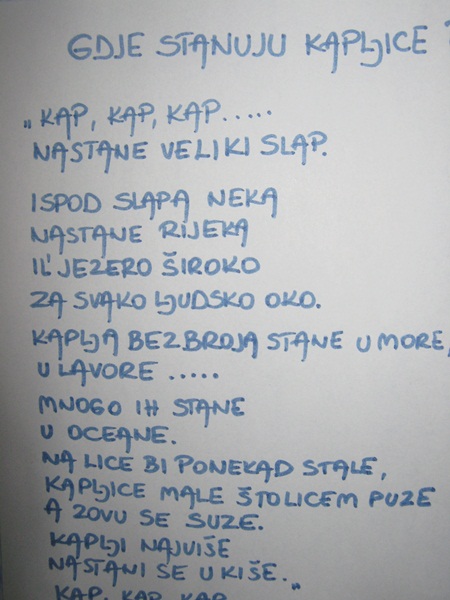 GDJE STANUJU KAPLJICE?
„KAP, KAP, KAP.....
NASTANE VELIKI SLAP.
ISPOD SLAPA NEKA
NASTANE RIJEKA
IL' JEZERO ŠIROKO
ZA SVAKO LJUDSKO OKO.
KAPLJA BEZBROJA STANE U MORE,
U LAVORE .....
MNOGO IH STANE
U OCEANE.
NA LICE BI PONEKAD STALE,
KAPLJICE MALE ŠTO LICEM PUZE
A ZOVU SE SUZE.
KAPLJI NAJVIŠE
NASTANI SE U KIŠE."
KAP, KAP, KAP